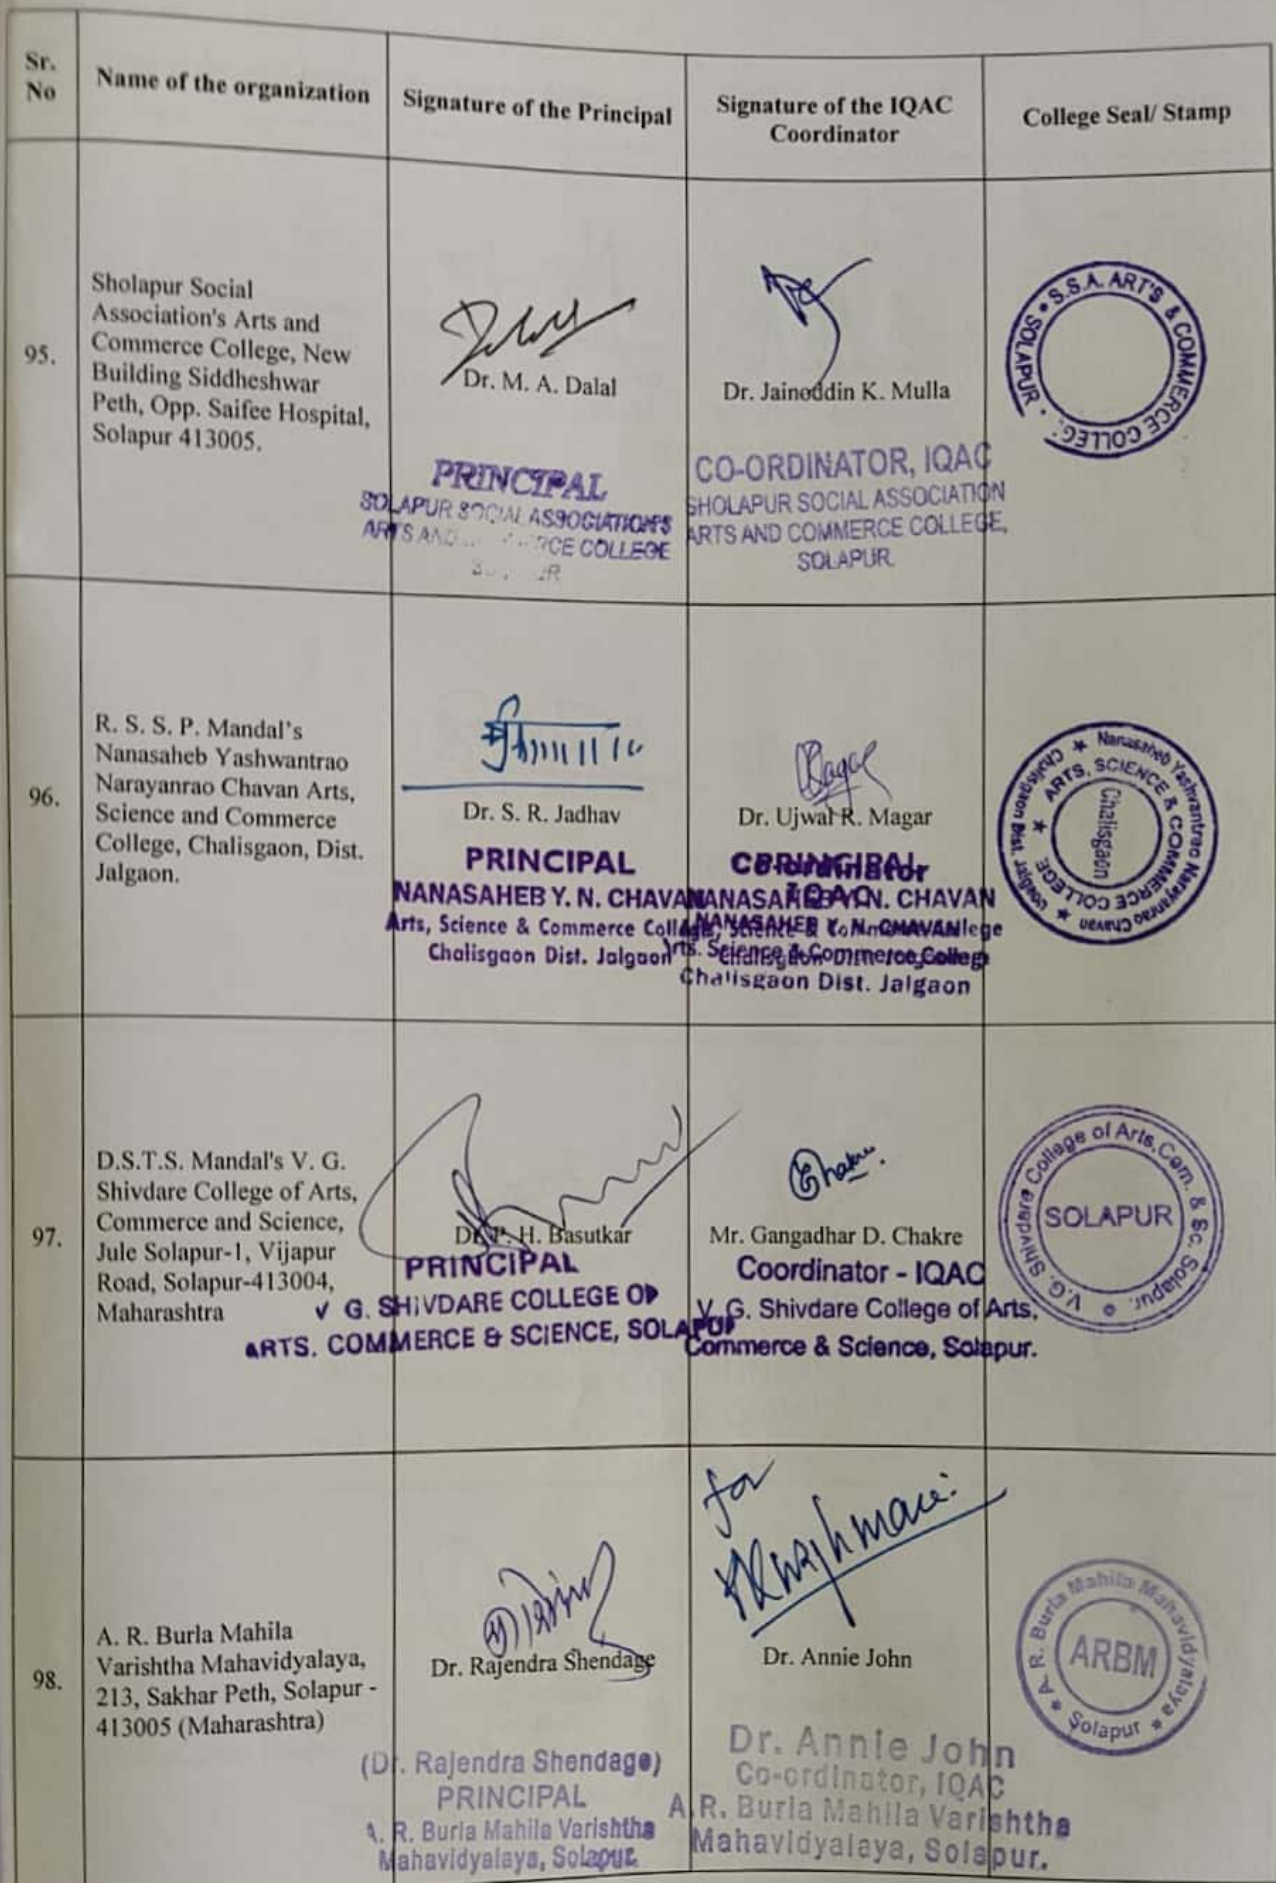 Sr. No
Name of the organization
Signature of the Principal
Signature of the IQAC Coordinator
College Seal/ Stamp
95.
Sholapur Social
Association's Arts and
Commerce College, New
Building Siddheshwar
Peth, Opp. Saifee Hospital,
Solapur 413005.
Dr. M. A. Dalal
PRINCIPAL
SOLAPUR SOCIAL ASSOCIATION'S
ARTS AND COLLEGE
Dr. Jainoddin K. Mulla
CO-ORDINATOR, IQAC
SHOLAPUR SOCIAL ASSOCIATION
ARTS AND COMMERCE COLLEGE,
SOLAPUR
S.S.A. ART'S & COMMERCE COLLEG. SOLAPUR
96.
R. S. S. P. Mandal's
Nanasaheb Yashwantrao
Narayanrao Chavan Arts,
Science and Commerce
College, Chalisgaon, Dist.
Jalgaon.
Dr. S. R. Jadhav
PRINCIPAL
NANASAHEB Y. N. CHAVAN
Arts, Science & Commerce College
Chalisgaon Dist. Jalgaon
Magar
Dr. Ujwal R. Magar
Co-ordinator
IQAC
NANASAHEB Y. N. CHAVAN
Arts. Science & Commerce College
Chalisgaon Dist. Jalgaon
Nanasaheb Yashvantrao Narayanrao Chavan
ARTS, SCIENCE & COMMERCE COLLEGE
Chalisgaon
Chalisgaon Dist. Jalgaon
97.
D.S.T.S. Mandal's V. G.
Shivdare College of Arts,
Commerce and Science,
Jule Solapur-1, Vijapur
Road, Solapur-413004,
Maharashtra
Dr. P. H. Basutkar
PRINCIPAL
V G. SHIVDARE COLLEGE OF
ARTS. COMMERCE & SCIENCE, SOLAPUR
Chakre.
Mr. Gangadhar D. Chakre
Coordinator - IQAC
V. G. Shivdare College of Arts,
Commerce & Science, Solapur.
V.G. Shivdare College of Arts, Com. & Sc. Solapur.
SOLAPUR
98.
A. R. Burla Mahila
Varishtha Mahavidyalaya,
213, Sakhar Peth, Solapur -
413005 (Maharashtra)
Dr. Rajendra Shendage
(Dr. Rajendra Shendage)
PRINCIPAL
A. R. Burla Mahila Varishtha
Mahavidyalaya, Solapur.
for
Dr. Annie John
Dr. Annie John
Co-ordinator, IQAC
A.R. Burla Mahila Varishtha
Mahavidyalaya, Solapur.
A. R. Burla Mahila Mahavidyalaya
ARBM
Solapur